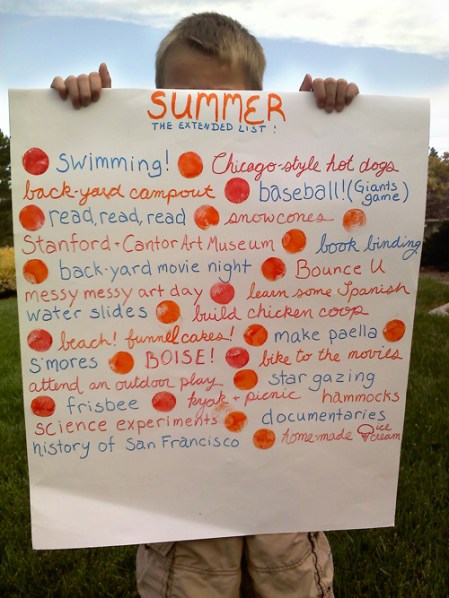 SUMMER
THE EXTENDED LIST:
swimming! Chicago-style hot dogs
back-yard campout baseball! (Giants game)
read, read, read snowcones
Stanford-Cantor Art Museum book binding
back-yard movie night Bounce U
messy messy art day learn some Spanish
water slides build chicken coop
beach! funnelcakes! make paella
S'mores BOISE! bike to the movies
attend an outdoor play star gazing
frisbee kayak + picnic hammocks
science experiments documentaries
history of San Francisco home-made ice cream